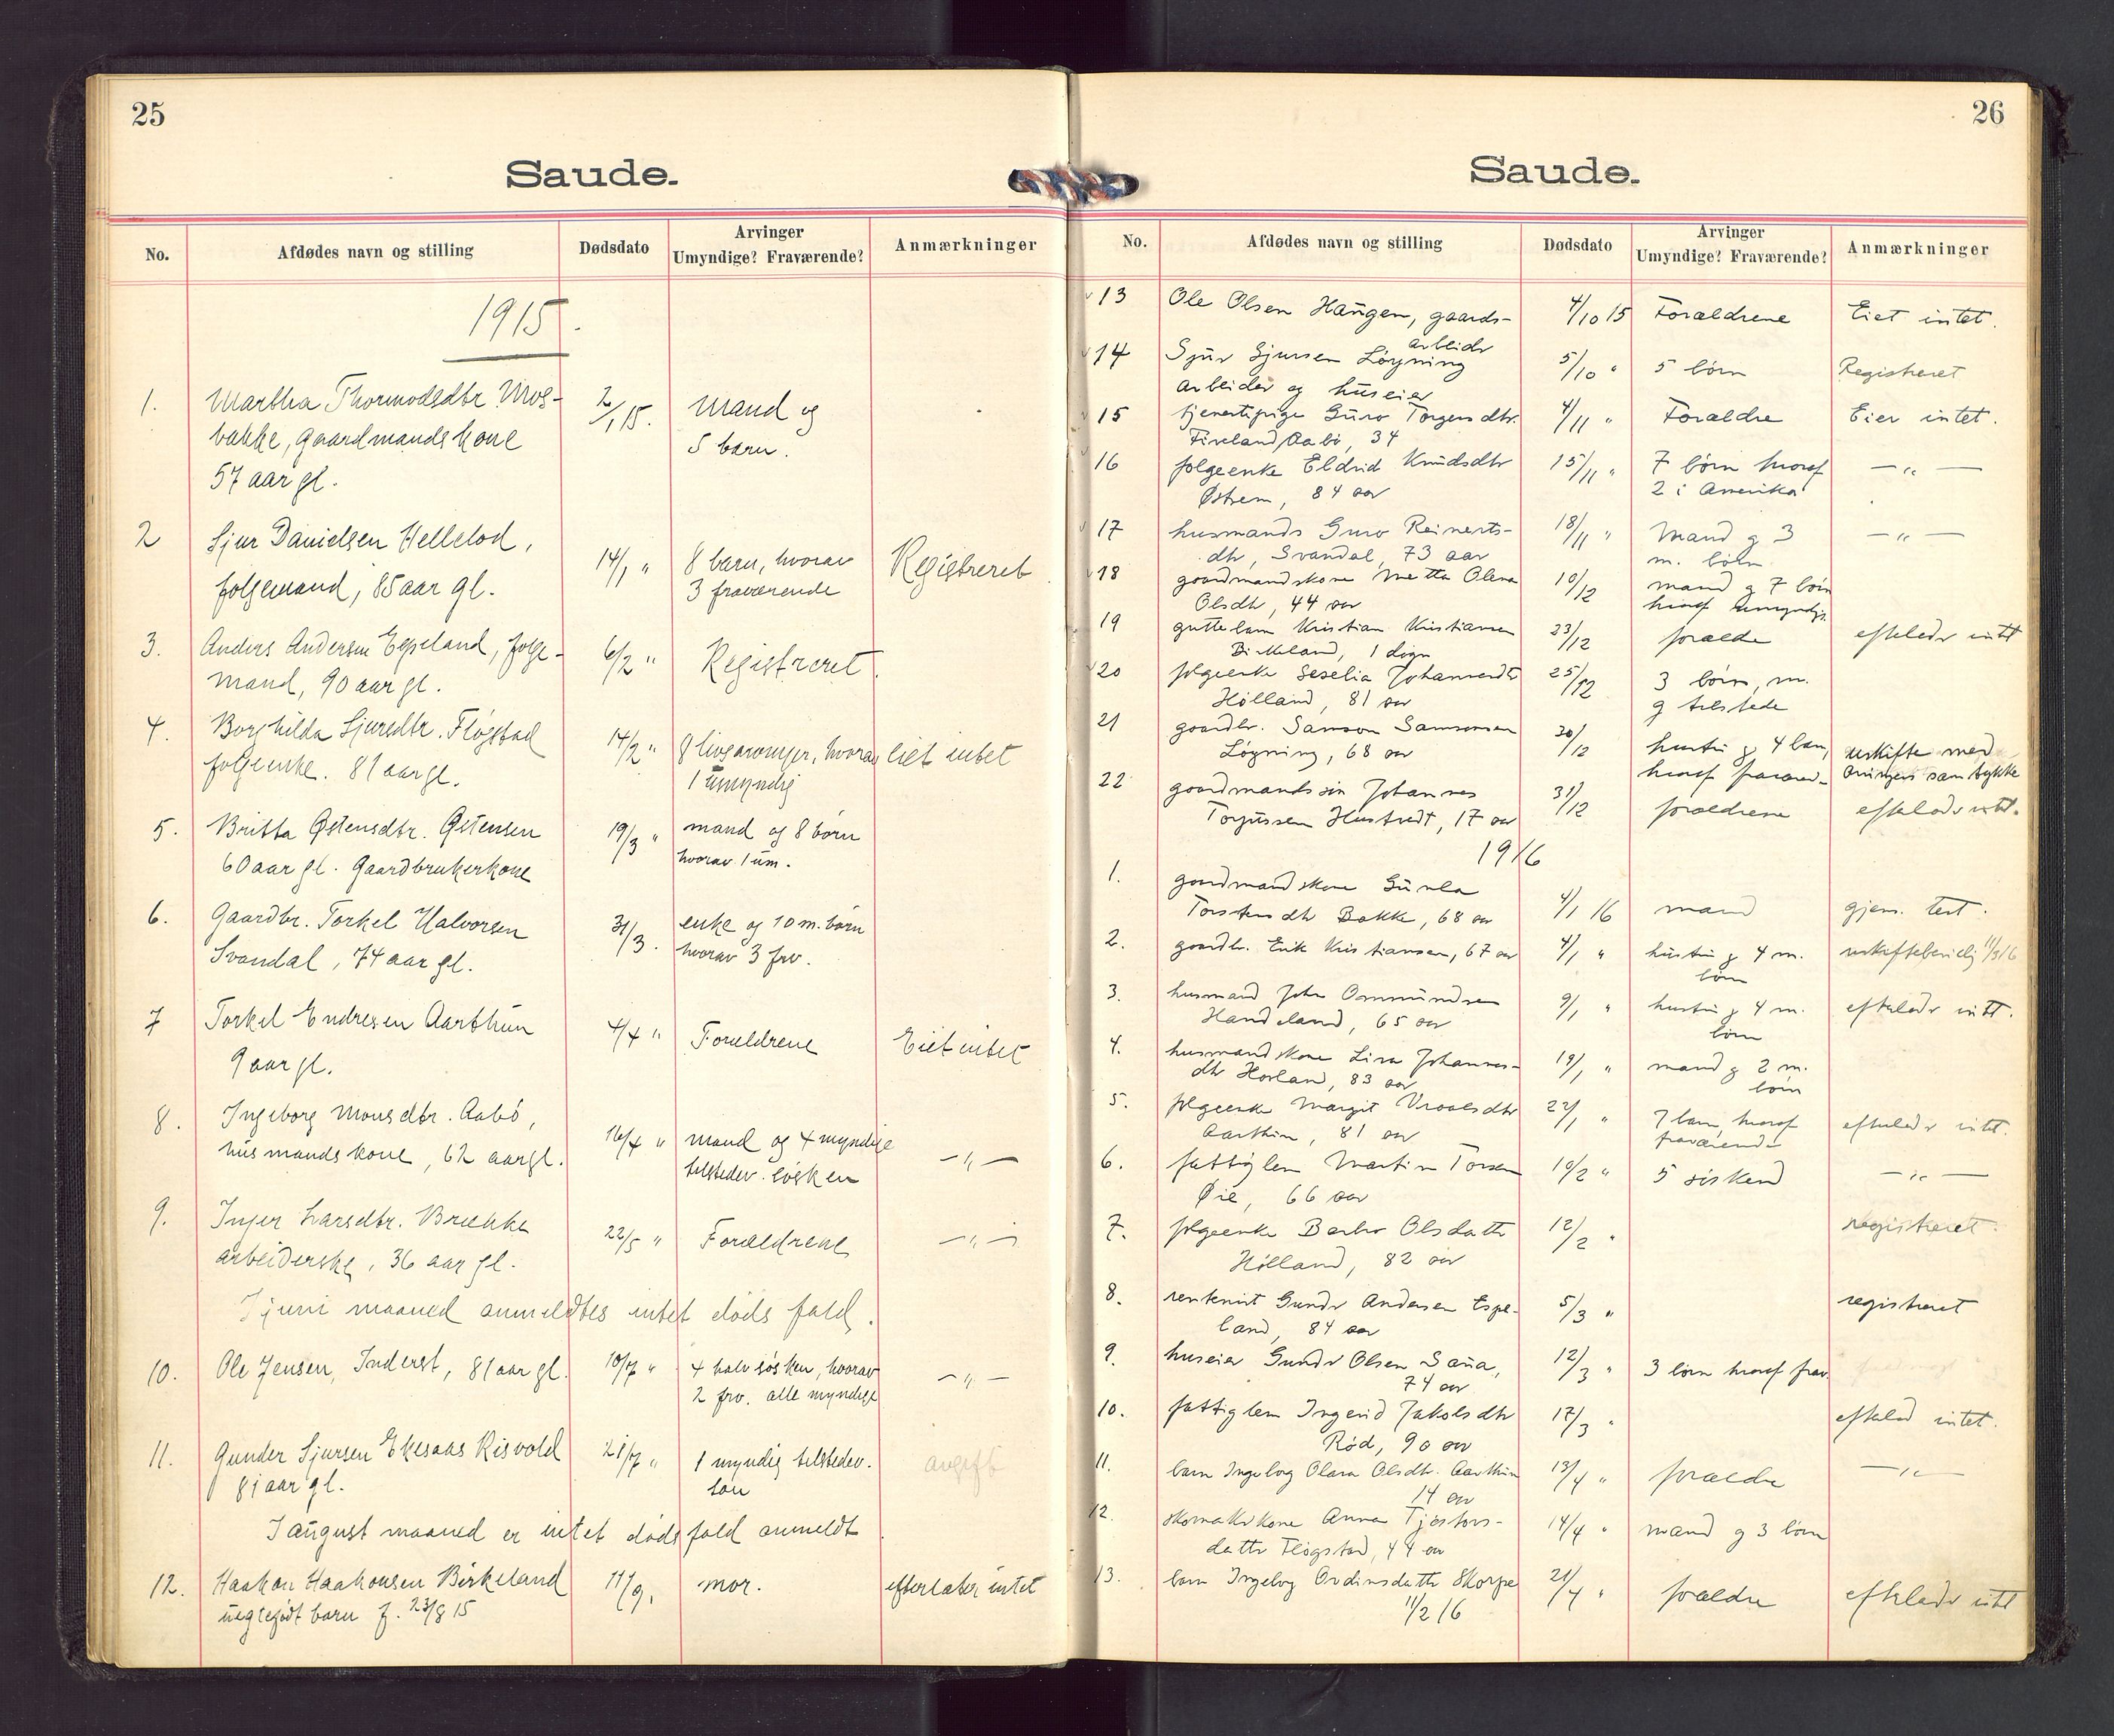 25
Saude.
No. Afdødes navn og stilling Dødsdato Arvinger Umyndige? Fraværende? Anmærkninger
1915.
1. Martha Thormodsdtr. Mos- 2/1 15. Mand og
bakke, Gaardmandskone 5 barn.
57 aar gl.
2 Sjur Danielsen Hellelod, 14/1 " 8 barn, hvorav Registreret
folgemand, 85 aar gl. 3 fraværende
3. Anders Andersen Espeland, folge- 6/2 " Registreret.
mand, 90 aar gl.
4. Borghilda Sjursdtr. Fløgstad 14/2 " 8 livsarvinger, hvorav eiet intet
folgeenke. 81 aar gl. 1 umyndig
5. Britta Østensdtr. Østensen 19/3 " mand og 8 børn
60 aar gl. Gaardbrukerkone hvorav 1 um.
6. Gaardbr. Torkel Halvorsen 31/3. enke og 10 m. børn
Svandal, 74 aar gl. hvorav 3 frv.
7 Torkel Endresen Aarthun 4/4 " Forældrene Eiet intet
9 aar gl.
8. Ingeborg Monsdtr. Aabø, 16/4 " mand og 4 myndige — " —
husmandskone, 62 aar gl. tilstedev. søsken
9. Inger Larsdtr. Brække 22/5 " Forældrene — " —
arbeiderske, 36 aar gl.
I juni maaned anmeldtes intet døds fald.
10. Ole Jensen, Inderst, 81 aar gl. 10/7 " 4 halvsøsken, hvorav — " —
2 frv. alle myndige
11. Gunder Sjursen Ekesaas Risvold 21/7 " 1 myndig tilstedev. avgift
81 aar gl. søn
I august maaned er intet døds fald anmeldt
12. Haakon Haakonsen Birkeland 11/9. mor. efterlater intet
uegtefødt barn f. 23/8 15
26
Saude.
No. Afdødes navn og stilling Dødsdato Arvinger Umyndige? Fraværende? Anmærkninger
13 Ole Olsen Haugen, gaards- 4/10 15 Forældrene Eiet intet.
arbeider
14 Sjur Sjursen Løgning 5/10 " 5 børn Registreret
arbeider og huseier
15 tjenestepige Guro Torgersdtr. 4/11 " Forældre Eier intet.
Fiveland Aabø, 34
16 folgeenke Eldrid Knudsdtr 15/11 " 7 børn hvoraf — " —
Østrem, 84 aar 2 i Amerika
17 husmands Guro Reinerts- 18/11 " Mand og 3 — " —
dtr, Svandal, 73 aar m. børn
18 gaardmandskone Metta Olena 10/12 mand og 7 børn
Olsdtr, 44 aar hvoraf umyndige
19 guttebarn Kristian Kristiansen 23/12 forældre efterlader intet
Birkeland, 1 døgn
20 folgeenke Seselia Johannesdtr 25/12 3 børn, m.
Hølland, 81 aar og tilstede
21 gaardbr. Samson Samsonsen 30/12 hustru og 4 barn, uskifte med
Løgning, 68 aar hvoraf fraværend- arvingers samtykke
22 gaardmandssøn Johannes 31/12 forældrene efterlader intet.
Torjussen Hustvedt, 17 aar
1916
1. gaardmandskone Gunla
Torstensdtr Bakke, 68 aar 4/1 16 mand gjens. test.
2. gaardbr. Erik Kristiansen, 67 aar 4/1 " hustru og 4 m. uskiftebevilg 11/3 16
børn
3. husmand John Ommundsen 9/1 " hustru og 4 m. efterlader intet.
Handeland, 65 aar børn
4. husmandskone Lisa Johannes- 19/1 " mand og 2 m.
dtr Horland, 83 aar børn
5. folgeenke Margit Vraalsdtr 22/1 " 7 barn, hvoraf efterlader intet.
Aarthun, 81 aar fraværende
6. fattiglem Martin Torsen 10/2 " 5 søskend — " —
Øie, 66 aar
7. folgeenke Barbro Olsdatter 12/2 " registreret.
Hølland, 82 aar
8. rentenist Gunder Andersen Espe- 5/3 " registreret
land, 84 aar
9. huseier Gunder Olsen Saua, 12/3 " 3 børn hvoraf frav.
74 aar
10. fattiglem Ingerid Jakobsdtr 17/3 " efterlod intet.
Rød, 90 aar
11. barn Ingeborg Olara Olsdtr. Aarthun 13/4 " forældre — " —
14 aar
12. skomakerkone Anna Tjøstovs- 14/4 " mand og 3 børn
datter Fløgstad, 44 aar
13. barn Ingeborg Ordinsdatter Skorpe 21/4 " forældre efterlader intet
11/2 16